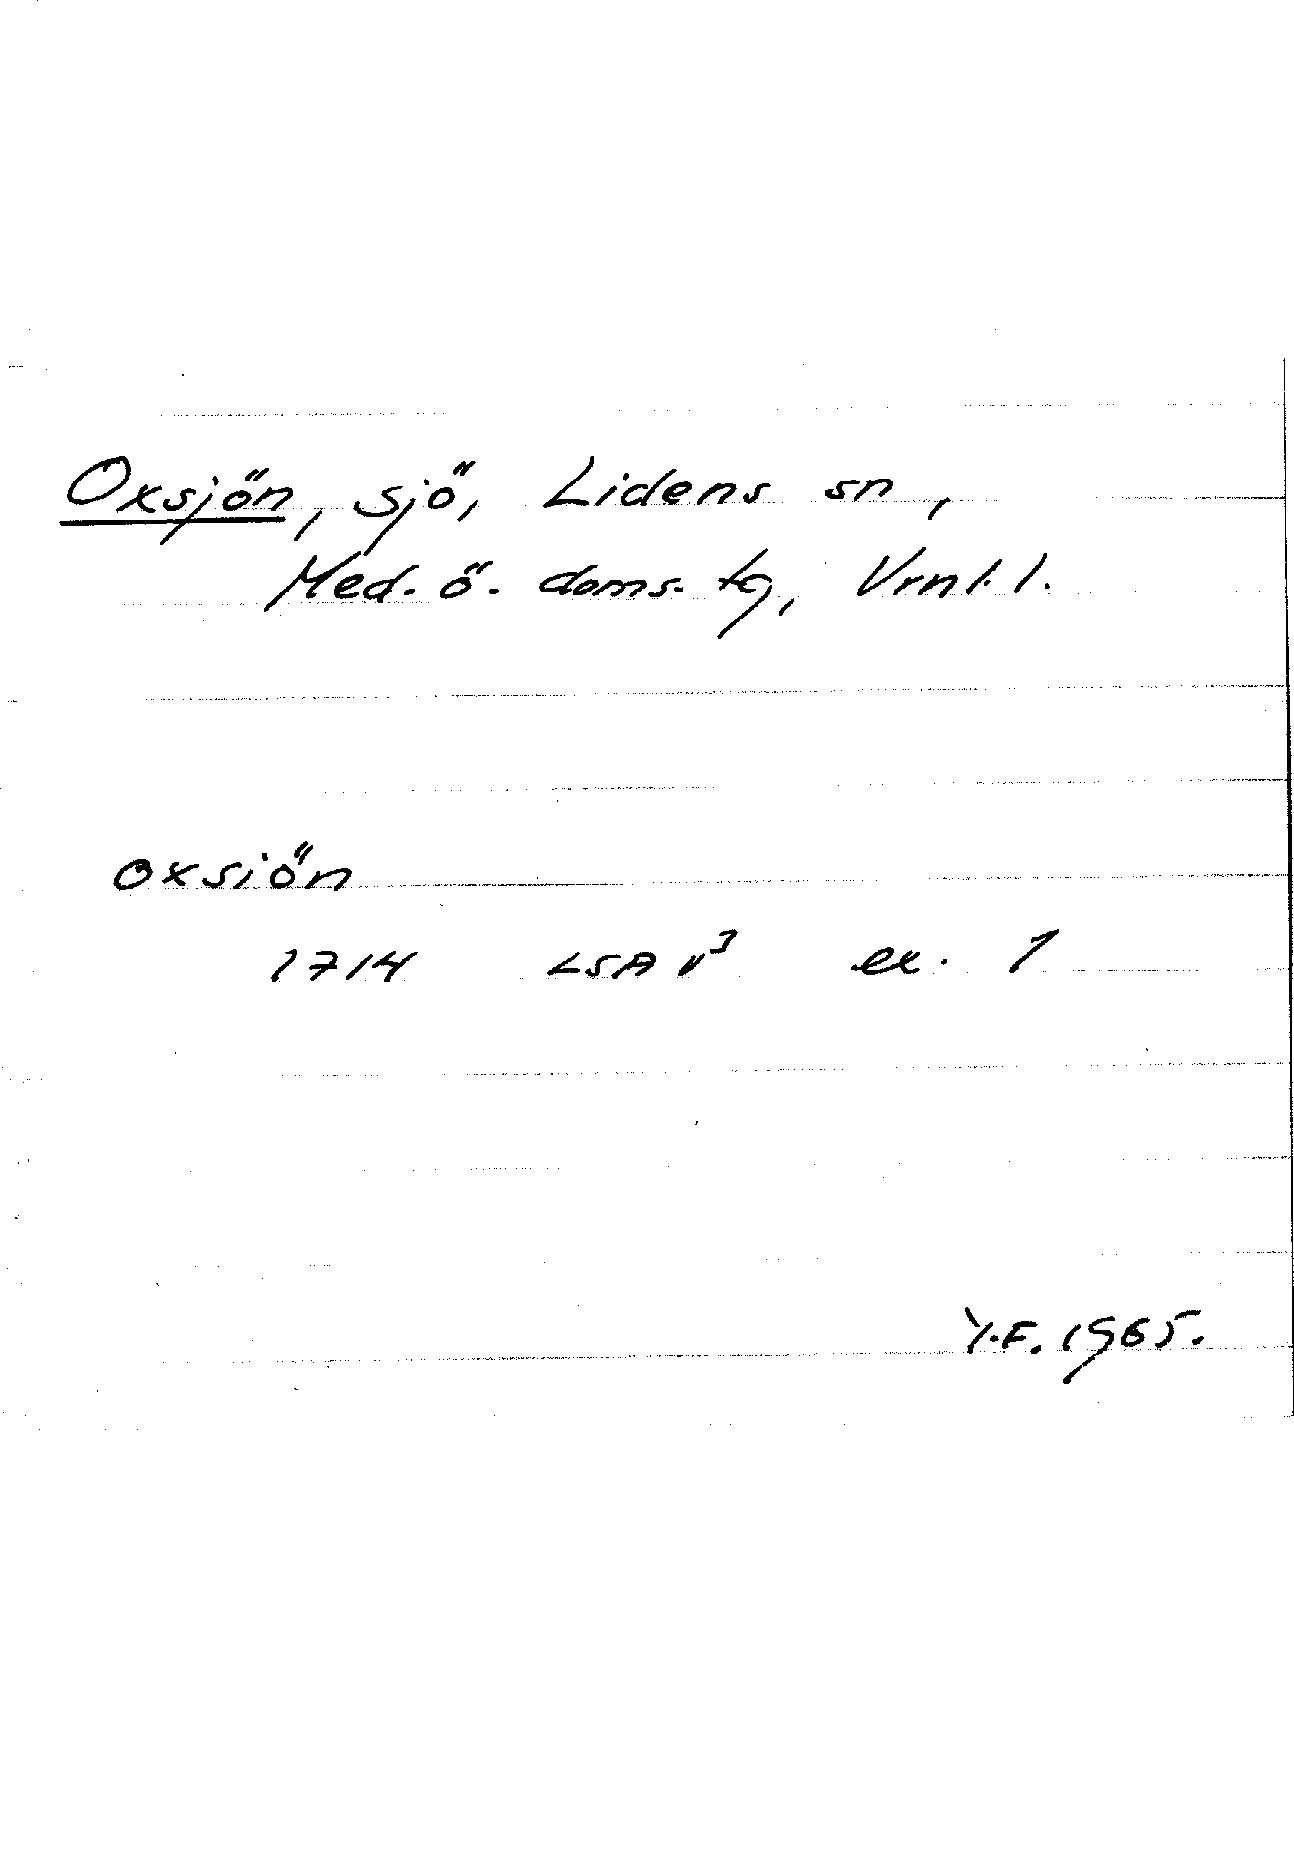 Oxsjön, sjö, Lidens sn,
Med. ö. doms. tg, Vrnl. l.
oxsiön
1714 LSA v³ ex. 1
Y.F. 1965.